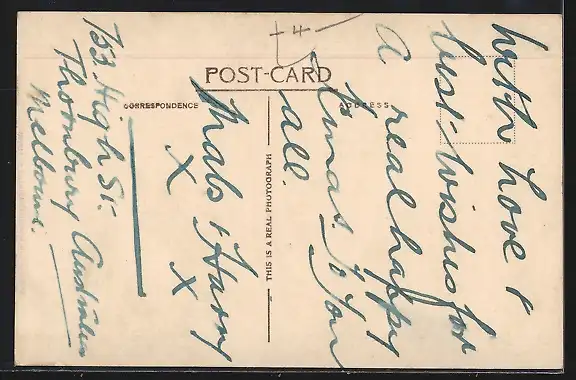 POST-CARD
CORRESPONDENCE
ADDRESS
THIS IS A REAL PHOTOGRAPH
With Love &
best wishes for
a real happy
Xmas. To You
all.
Mabs & Harry
X X
733 High St.
Thornbury Australia
Melbourne.